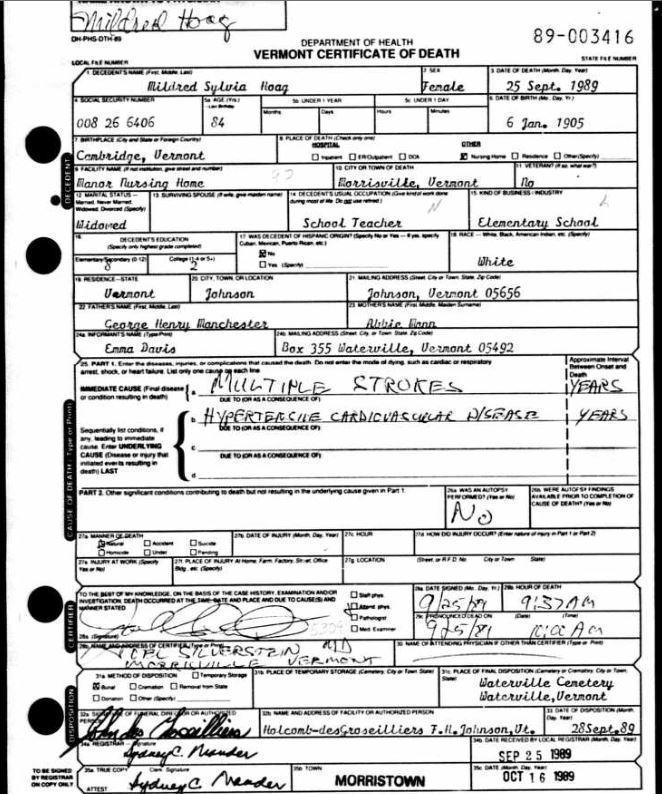 Mildred Hoag
DH-PHS-DTH-89
DEPARTMENT OF HEALTH
89-003416
VERMONT CERTIFICATE OF DEATH
LOCAL FILE NUMBER
STATE FILE NUMBER
1. DECEDENT'S NAME (First, Middle, Last)
2. SEX
3. DATE OF DEATH (Month, Day, Year)
Mildred Sylvia Hoag
Female
25 Sept. 1989
4. SOCIAL SECURITY NUMBER
5a. AGE (Yrs.) Last Birthday
5b. UNDER 1 YEAR
5c. UNDER 1 DAY
6. DATE OF BIRTH (Mo., Day, Yr.)
Months
Days
Hours
Minutes
008 26 6406
84
6 Jan. 1905
7. BIRTHPLACE (City and State or Foreign Country)
8. PLACE OF DEATH (Check only one)
HOSPITAL
OTHER
Cambridge, Vermont
Inpatient
ER/Outpatient
DOA
Nursing Home
Residence
Other (Specify)
9. FACILITY NAME (If not institution, give street and number)
10. CITY OR TOWN OF DEATH
11. VETERAN (If so, what war?)
Manor Nursing Home
Morrisville, Vermont
No
12. MARITAL STATUS - Married, Never Married, Widowed, Divorced (Specify)
13. SURVIVING SPOUSE (If wife, give maiden name)
14. DECEDENT'S USUAL OCCUPATION (Give kind of work done during most of life. Do not use retired.)
15. KIND OF BUSINESS / INDUSTRY
Widowed
School Teacher
Elementary School
16. DECEDENT'S EDUCATION (Specify only highest grade completed)
17. WAS DECEDENT OF HISPANIC ORIGIN? (Specify No or Yes - If yes, specify Cuban, Mexican, Puerto Rican, etc.)
18. RACE - White, Black, American Indian, etc. (Specify)
Elementary/Secondary (0-12)
College (1-4 or 5+)
No
Yes (Specify)
8
2
White
19. RESIDENCE - STATE
20. CITY, TOWN, OR LOCATION
21. MAILING ADDRESS (Street, City or Town, State, Zip Code)
Vermont
Johnson
Johnson, Vermont 05656
22. FATHER'S NAME (First, Middle, Last)
23. MOTHER'S NAME (First, Middle, Maiden Surname)
George Henry Manchester
Abbie Mann
24a. INFORMANT'S NAME (Type/Print)
24b. MAILING ADDRESS (Street, City or Town, State, Zip Code)
Emma Davis
Box 355 Waterville, Vermont 05492
25. PART 1. Enter the diseases, injuries, or complications that caused the death. Do not enter the mode of dying, such as cardiac or respiratory arrest, shock, or heart failure. List only one cause on each line.
Approximate Interval Between Onset and Death
IMMEDIATE CAUSE (Final disease or condition resulting in death)
a. MULTIPLE STROKES
YEARS
DUE TO (OR AS A CONSEQUENCE OF)
b. HYPERTENSIVE CARDIOVASCULAR DISEASE
YEARS
DUE TO (OR AS A CONSEQUENCE OF)
Sequentially list conditions, if any, leading to immediate cause. Enter UNDERLYING CAUSE (Disease or injury that initiated events resulting in death) LAST
c.
DUE TO (OR AS A CONSEQUENCE OF)
d.
PART 2. Other significant conditions contributing to death but not resulting in the underlying cause given in Part 1.
26a. WAS AN AUTOPSY PERFORMED? (Yes or No)
26b. WERE AUTOPSY FINDINGS AVAILABLE PRIOR TO COMPLETION OF CAUSE OF DEATH? (Yes or No)
No
27a. MANNER OF DEATH
27b. DATE OF INJURY (Month, Day, Year)
27c. HOUR
27d. HOW DID INJURY OCCUR? (Enter nature of injury in Part 1 or Part 2)
Natural
Accident
Suicide
Homicide
Pending
27e. INJURY AT WORK (Specify Yes or No)
27f. PLACE OF INJURY At Home, Farm, Factory, Street, Office Bldg., etc. (Specify)
27g. LOCATION
(Street, or R.F.D. No.
City or Town
State)
TO THE BEST OF MY KNOWLEDGE, ON THE BASIS OF THE CASE HISTORY, EXAMINATION AND/OR INVESTIGATION, DEATH OCCURRED AT THE TIME, DATE AND PLACE AND DUE TO CAUSE(S) AND MANNER STATED
Staff phys.
Attend. phys.
Pathologist
Med. Examiner
28a. (Signature)
29a. DATE SIGNED (Mo., Day, Yr.)
29b. HOUR OF DEATH
9/25/89
9:37 AM
29c. PRONOUNCED DEAD ON
(Date)
(Time)
9/25/89
10:00 AM
28b. NAME AND ADDRESS OF CERTIFIER (Type or Print)
30. NAME OF ATTENDING PHYSICIAN IF OTHER THAN CERTIFIER (Type or Print)
SILVERSTEIN MD
MORRISVILLE VERMONT
31a. METHOD OF DISPOSITION
Temporary Storage
31b. PLACE OF TEMPORARY STORAGE (Cemetery, City or Town, State)
31c. PLACE OF FINAL DISPOSITION (Cemetery or Crematory, City or Town, State)
Burial
Cremation
Removal from State
Donation
Other (Specify)
Waterville Cemetery
Waterville, Vermont
32a. SIGNATURE OF FUNERAL DIRECTOR OR AUTHORIZED PERSON
32b. NAME AND ADDRESS OF FACILITY OR AUTHORIZED PERSON
33. DATE OF DISPOSITION (Month, Day, Year)
Holcomb-desGroseilliers F.H. Johnson, Vt.
28 Sept. 89
34a. REGISTRAR - Signature
34b. DATE RECEIVED BY LOCAL REGISTRAR (Month, Day, Year)
Sydney C. Nander
SEP 25 1989
TO BE SIGNED BY REGISTRAR ON COPY ONLY
35a. TRUE COPY
Clerk - Signature
35b. TOWN
35c. DATE (Month, Day, Year)
ATTEST
Sydney C. Nander
MORRISTOWN
OCT 16 1989
DECEDENT
CAUSE OF DEATH - Type or Print
CERTIFIER
DISPOSITION